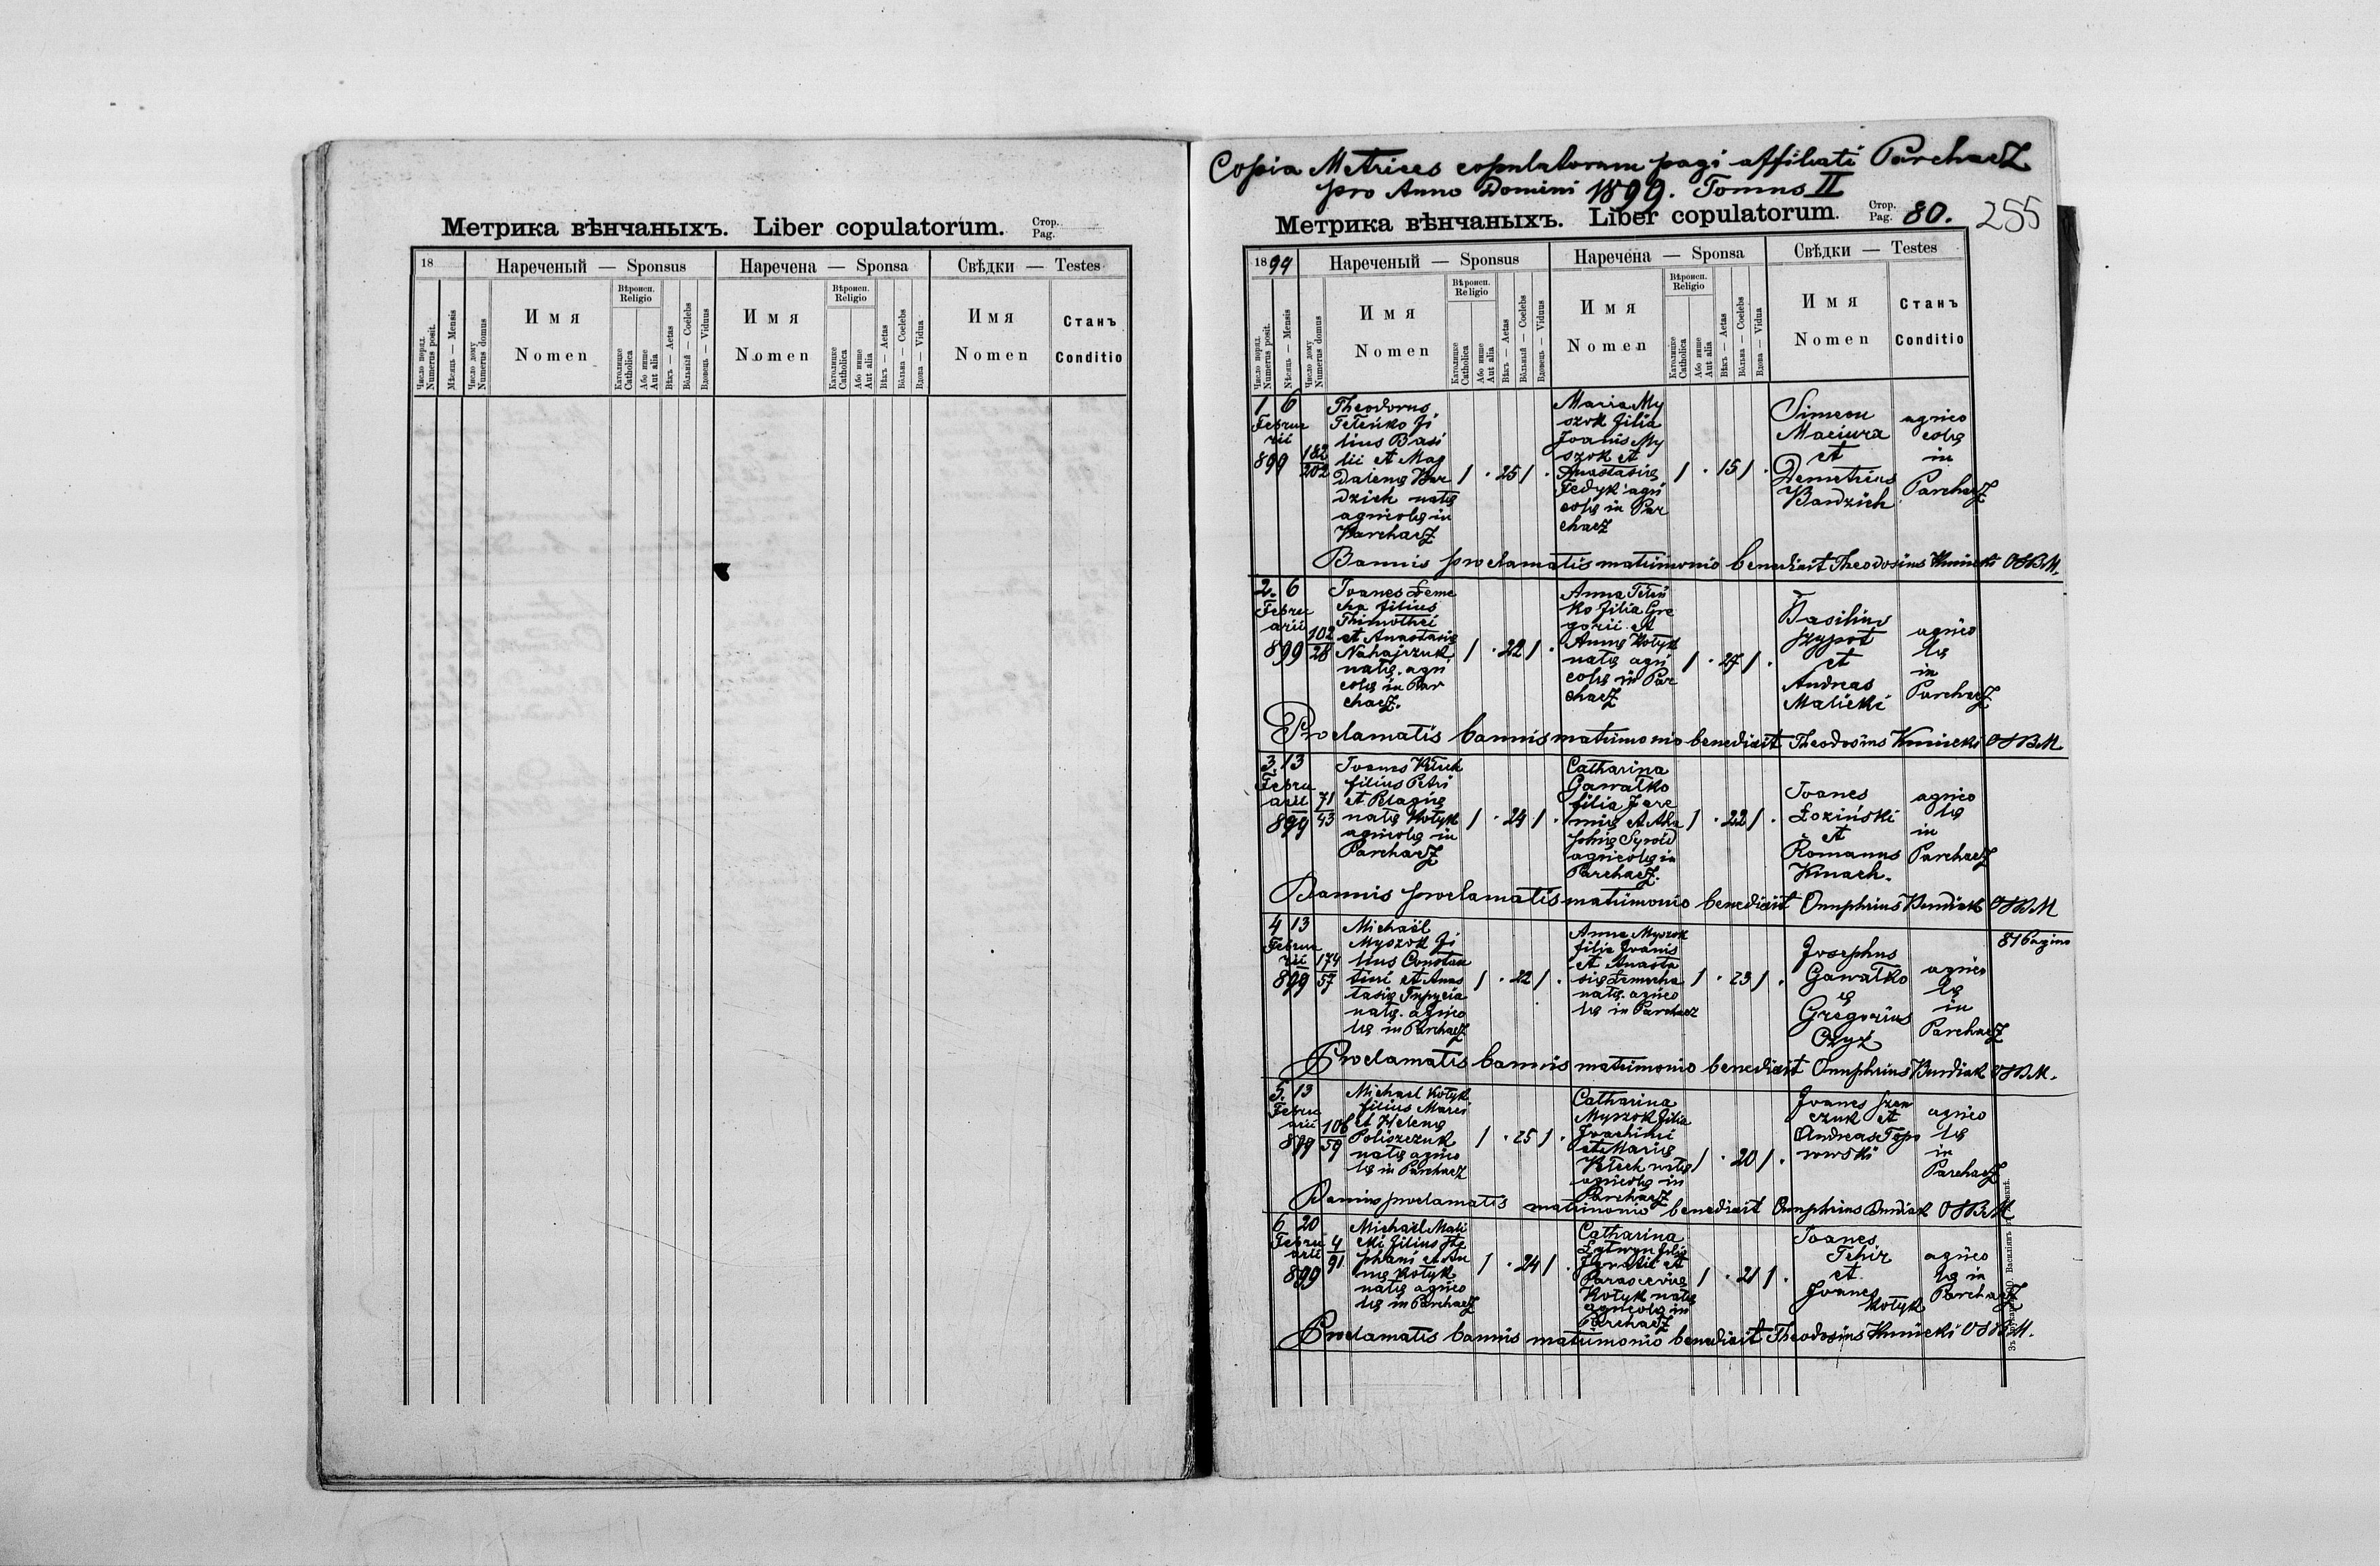 Метрика вѣнчаныхъ. Liber copulatorum. Стор. Pag.
18
Нареченый — Sponsus
Наречена — Sponsa
Свѣдки — Testes
Число поряд. Numerus posit.
Мѣсяць — Mensis
Число дому Numerus domus
Имя
Nomen
Вѣроисп. Religio
Католицке Catholica
Або инше Aut alia
Вѣкъ — Aetas
Вôльный — Coelebs
Вдовець — Viduus
Имя
Nomen
Вѣроисп. Religio
Католицке Catholica
Або инше Aut alia
Вѣкъ — Aetas
Вôльна — Coelebs
Вдова — Vidua
Имя
Nomen
Станъ
Conditio
Copia Metrices copulatorum pagi affiliati Parchacz
pro Anno Domini 1899. Tomus II
Метрика вѣнчаныхъ. Liber copulatorum. Стор. Pag. 80.
255
1899
Нареченый — Sponsus
Наречена — Sponsa
Свѣдки — Testes
Число поряд. Numerus posit.
Мѣсяць — Mensis
Число дому Numerus domus
Имя
Nomen
Вѣроисп. Religio
Католицке Catholica
Або инше Aut alia
Вѣкъ — Aetas
Вôльный — Coelebs
Вдовець — Viduus
Имя
Nomen
Вѣроисп. Religio
Католицке Catholica
Або инше Aut alia
Вѣкъ — Aetas
Вôльна — Coelebs
Вдова — Vidua
Имя
Nomen
Станъ
Conditio
1 6
Februa
rii
899
182
202
Theodorus
Feteńko fi
lius Basi
lii et Mag
dalenę Bar
dzich natę
agricolę in
Parchacz
1 · 25 1 ·
Maria My
szok filia
Joanis My
szok et
Anastasię
Fedyk agri
colę in Par
chacz
1 · 15 1 ·
Simeon
Maciura
et
Demetrius
Bardzich
agrico
colę
in
Parchacz
Bannis proclamatis matrimonio benedixit Theodosius Kunicki OSBM.
2. 6
Febru
arii
899
102
28
Joanes Deme
cha filius
Thimothei
et Anastasię
Nahajczuk
natę agri
colę in Par
chacz.
1 · 22 1 ·
Anna Feteń
ko filia Gre
gorii et
Annę Kotyk
natę agri
colę in Par
chacz
1 · 27 1 ·
Basilius
Szypot
et
Andreas
Malicki
agrico
lę
in
Parchacz
Proclamatis bannis matrimonio benedixit Theodosius Kunicki OSBM
3. 13
Febru
arii
899
71
43
Joanes
filius Petri
et Pelagię
natę Kotyk
agricolę in
Parchacz
1 · 24 1 ·
Catharina
Gawałko
filia Jere
mię et
agricolę in
Parchacz.
1 · 22 1 ·
Joanes
Łoziński
et
Romanus
Kinach.
agrico
lę
in
Parchacz
Bannis proclamatis matrimonio benedixit Onuphrius Burdiak OSBM
4 13
Februa
rii
899
174
57
Michaël
Myszok fi
lius Constan
tini et Anas
tasię
natę. agrico
lę in Parchacz
1 · 22 1 ·
Anna Myszok
filia Joanis
et Anasta
się
natę. agrico
lę in Parchacz
1 · 23 1 ·
Josephus
Gawałko
Gregorius
Czyż
agrico
lę
in
Parchacz
81 Pagina
Proclamatis bannis matrimonio benedixit Onuphrius Burdiak OSBM.
5. 13
Febru
arii
899
106
59
Michael Kotyk
filius Marci
et Helenę
Poliszczuk
natę agrico
lę in Parchacz
1 · 25 1 ·
Catharina
Myszok filia
Joachimi
et Marię
natę
agricolę in
Parchacz
1 · 20 1 ·
Joanes Szew
czuk et
Andreas Topo
rowski
agrico
lę
in
Parchacz
Bannis proclamatis matrimonio benedixit Onuphrius Burdiak OSBM
6 20
Febru
arii
899
4
91
Michaël Mali
cki filius Ste
phani et An
nę Kotyk
natę agrico
lę in Parchacz
1 · 24 1 ·
Catharina
filia
Ignatii et
Parascevię
Kotyk natę
agricolę in
Parchacz
1 · 21 1 ·
Joanes
Tchir
et
Joanes
Kotyk
agrico
lę in
Parchacz
Proclamatis bannis matrimonio benedixit Theodosius Kunicki OSBM.